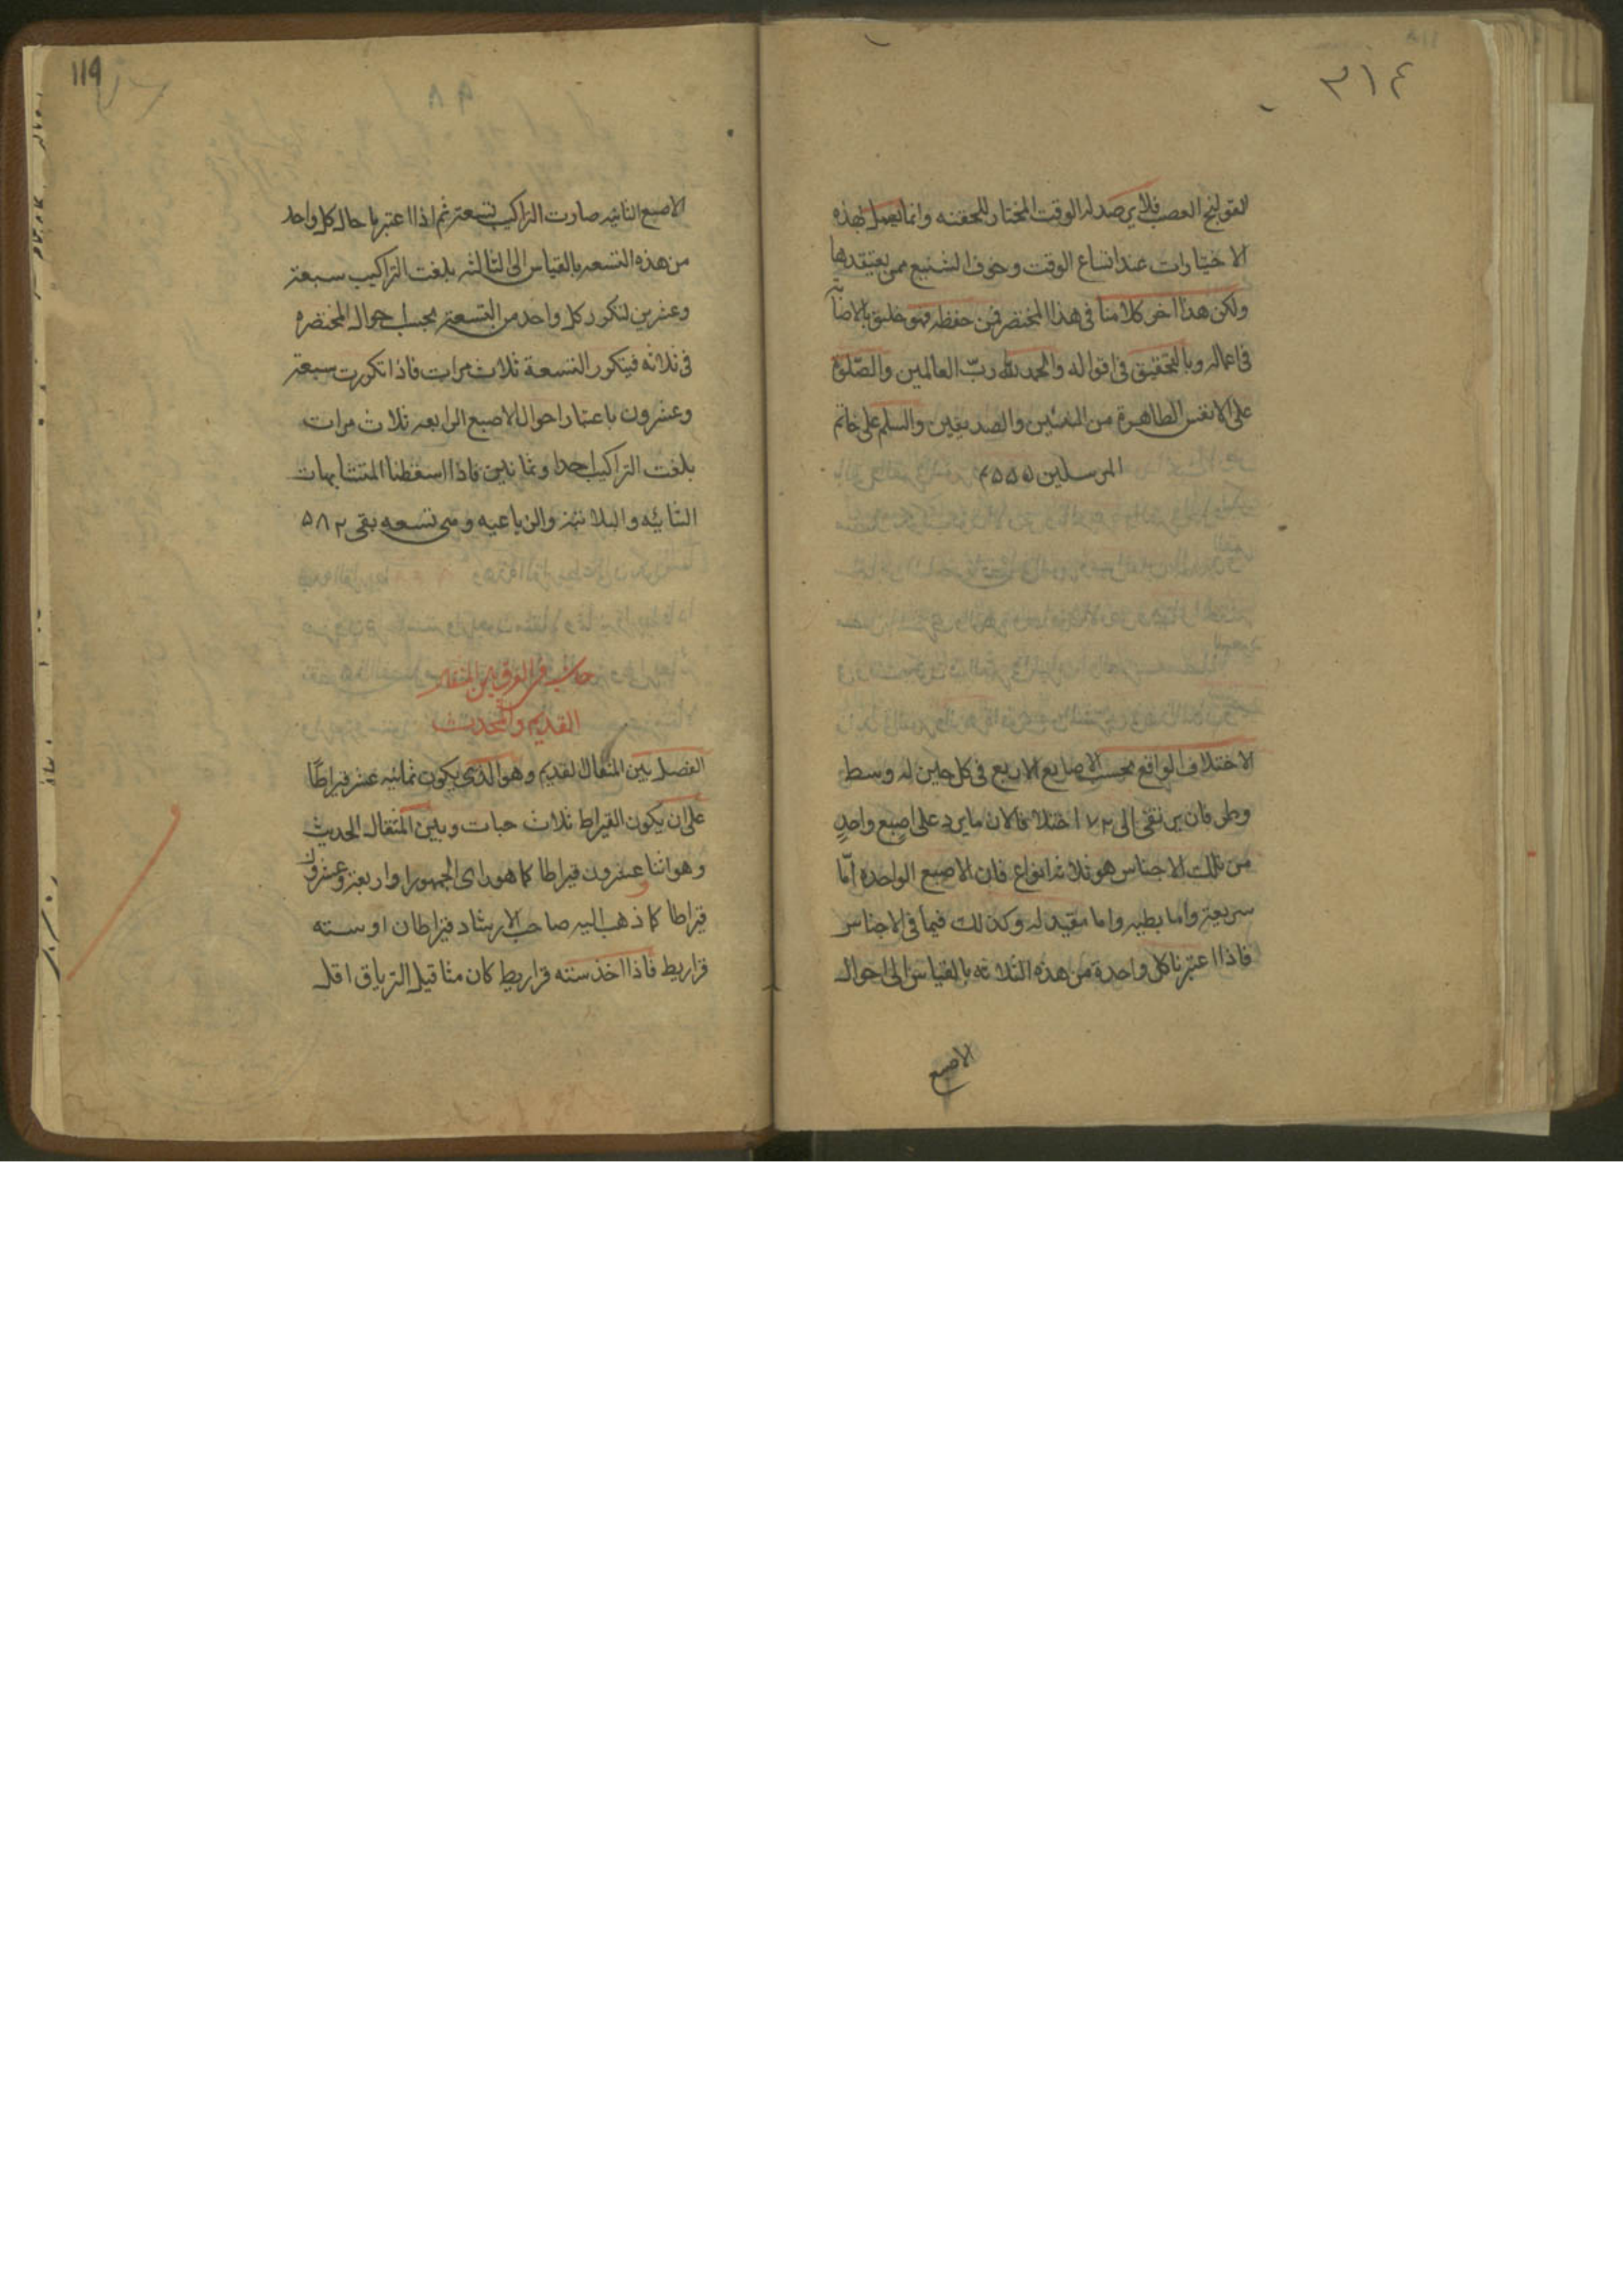 ٣١٤
القولنج الصعب فلا يرصد له الوقت المختار للحقنه وانما يعمل بهذه
الاختيارات عند اتساع الوقت وخوف التشنيع ممن يعتقدها
ولكن هذا اخر كلامنا فى هذا المختصر فمن حفظه فهو خليق بالاصابة
فى اعماله وبالتحقيق فى اقواله والحمد لله ربّ العالمين والصّلوة
على الانفس الطاهرة من النبيين والصديقين والسلم على خاتم
المرسلين
الاختلاف الواقع بحسب الاصابع الاربع فى كل جلين له وسط
وطر فان يرتقى الى ٧٢ اختلافا لان ما يرد على اصبع واحدٍ
من تلك الاجناس هو ثلاثه انواع فان الاصبع الواحده امّا
سريعة واما بطيه واما معتدله وكذلك فيما فى الاجناس
فاذا اعتبرنا كل واحدة من هذه الثلاثه بالقياس الى احوال
الاصبع
١١٩
٩٨
الاصبع الثانيه صارت التراكيب تسعة ثم اذا اعتبرنا حال كل واحد
من هذه التسعه بالقياس الى الثالثه بلغت التراكيب سبعة
وعشرين لتكرر كل واحد من التسعة بحسب احوال المختصره
فى ثلاثه فيتكرر التسعة ثلاث مرات فاذا تكررت سبعة
وعشرون باعتبار احوال الاصبع الرابعه ثلاث مرات
بلغت التراكيب احدا وثمانين فاذا اسقطنا المتشابهات
الثنائيه والثلاثيه والرباعيه وهى تسعه بقى
فى الفرق بين المثقال
القديم والمحدث
الفصل بين المثقال القديم وهو الذى يكون ثمانيه عشر قيراطًا
على ان يكون القيراط ثلاث حبات وبين المثقال الحديث
وهو اثنا عشرون قيراطا كما هو راى الجمهور او اربعة وعشرون
قيراطا كما ذهب اليه صاحب الارشاد قيراطان او سته
قراريط فاذا اخذ سته قراريط كان مثاقيل الترياق اقل